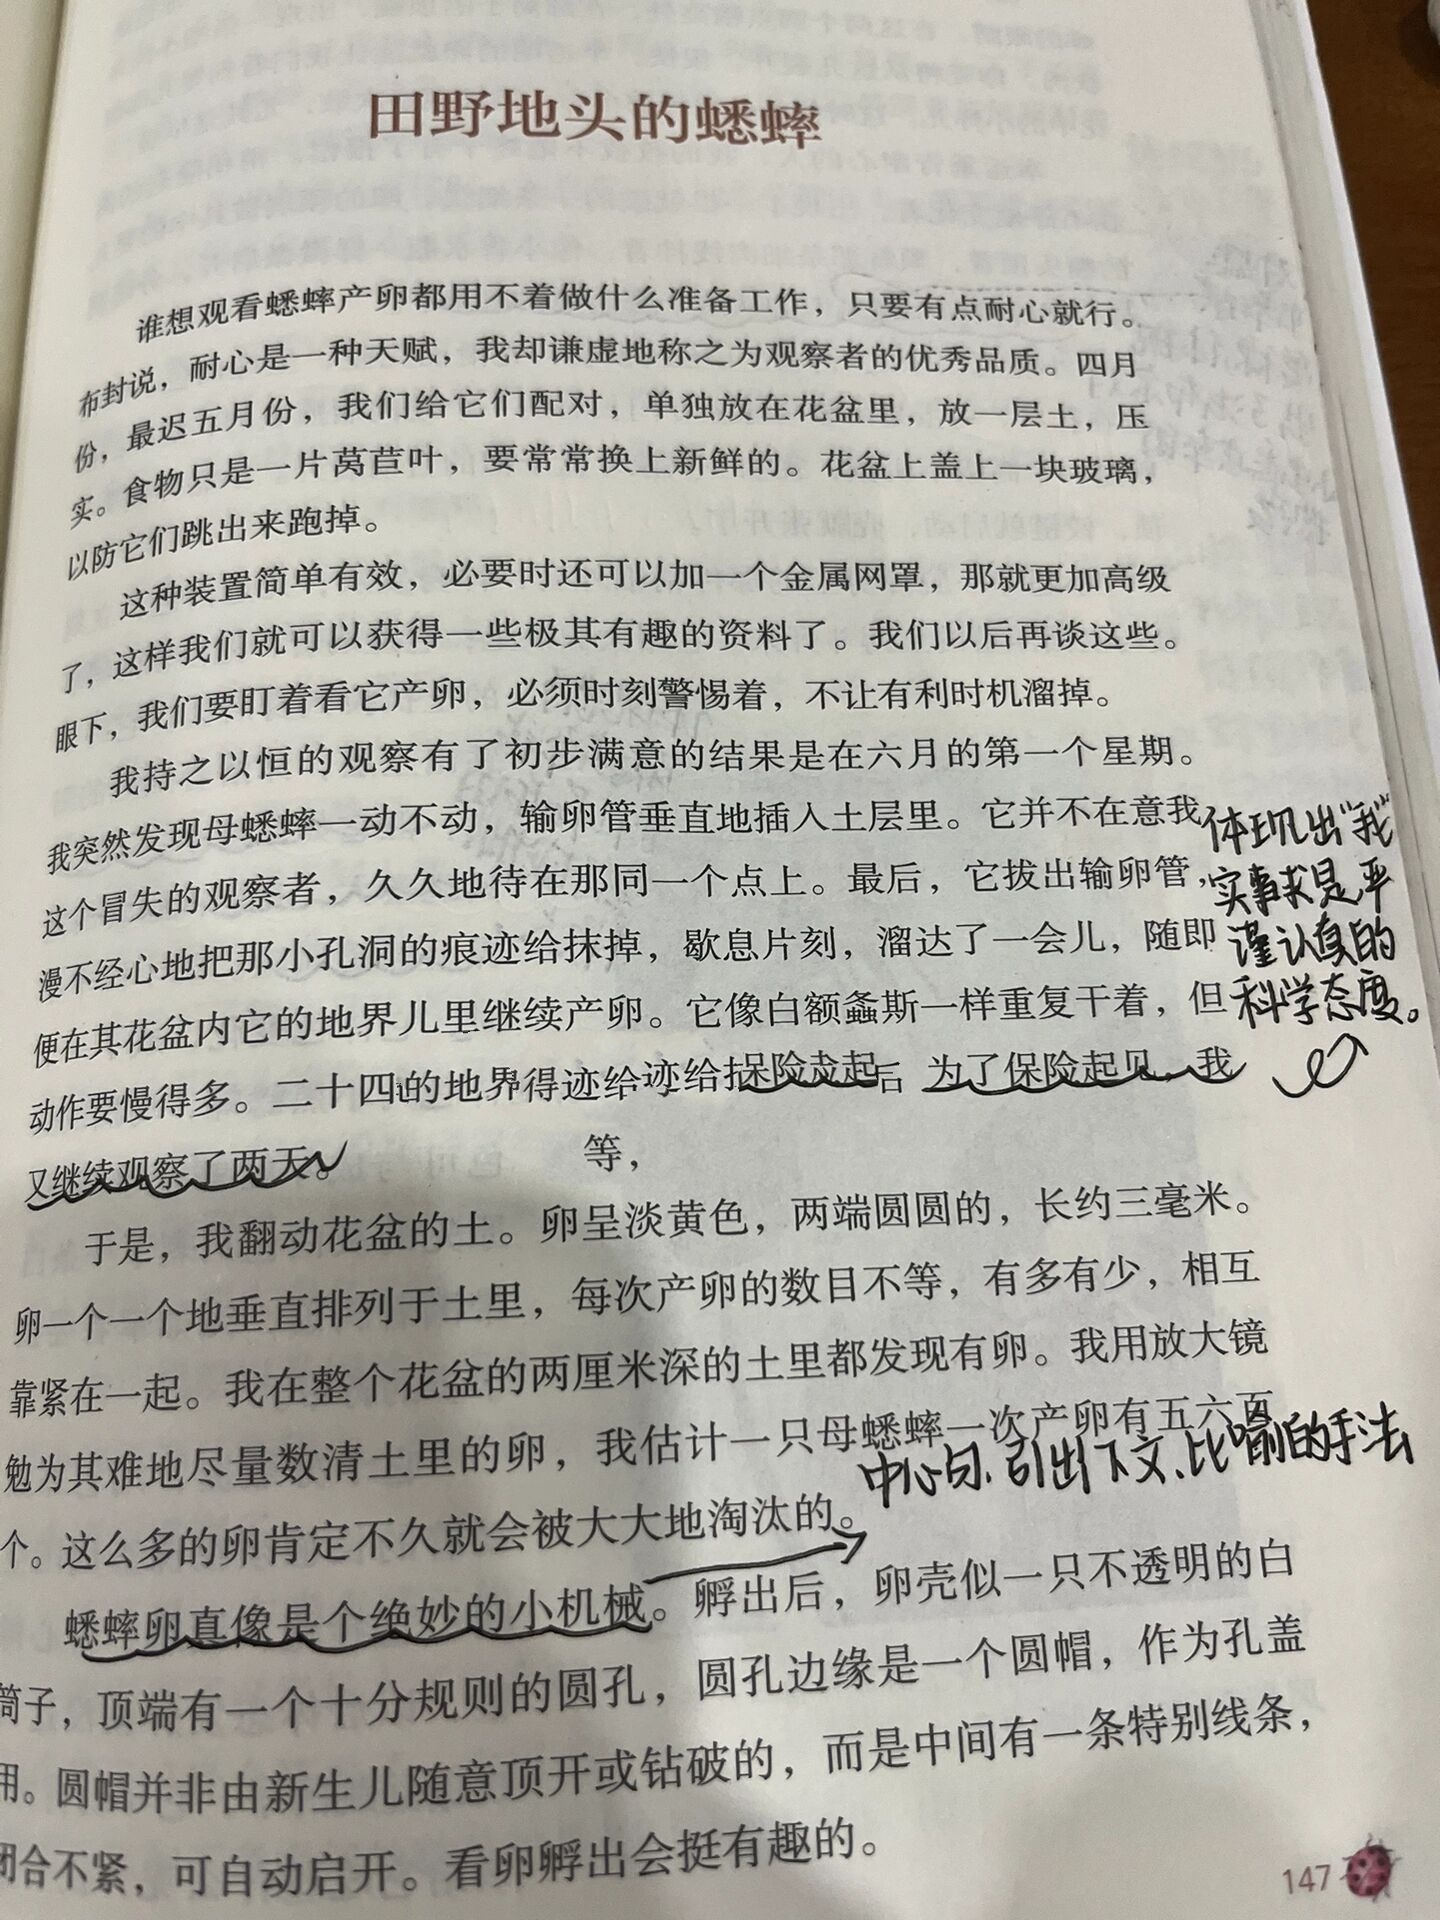 田野地头的蟋蟀
谁想观看蟋蟀产卵都用不着做什么准备工作，只要有点耐心就行。
布封说，耐心是一种天赋，我却谦虚地称之为观察者的优秀品质。四月
份，最迟五月份，我们给它们配对，单独放在花盆里，放一层土，压
实。食物只是一片莴苣叶，要常常换上新鲜的。花盆上盖上一块玻璃，
以防它们跳出来跑掉。
这种装置简单有效，必要时还可以加一个金属网罩，那就更加高级
了，这样我们就可以获得一些极其有趣的资料了。我们以后再谈这些。
眼下，我们要盯着看它产卵，必须时刻警惕着，不让有利时机溜掉。
我持之以恒的观察有了初步满意的结果是在六月的第一个星期。
我突然发现母蟋蟀一动不动，输卵管垂直地插入土层里。它并不在意我
这个冒失的观察者，久久地待在那同一个点上。最后，它拔出输卵管，
漫不经心地把那小孔洞的痕迹给抹掉，歇息片刻，溜达了一会儿，随即
便在其花盆内它的地界儿里继续产卵。它像白额螽斯一样重复干着，但
动作要慢得多。二十四的地界得迹给迹给保险起后 为了保险起见，我
又继续观察了两天。
等，
于是，我翻动花盆的土。卵呈淡黄色，两端圆圆的，长约三毫米。
卵一个一个地垂直排列于土里，每次产卵的数目不等，有多有少，相互
靠紧在一起。我在整个花盆的两厘米深的土里都发现有卵。我用放大镜
勉为其难地尽量数清土里的卵，我估计一只母蟋蟀一次产卵有五六百
个。这么多的卵肯定不久就会被大大地淘汰的。
蟋蟀卵真像是个绝妙的小机械。孵出后，卵壳似一只不透明的白
筒子，顶端有一个十分规则的圆孔，圆孔边缘是一个圆帽，作为孔盖
用。圆帽并非由新生儿随意顶开或钻破的，而是中间有一条特别线条，
闭合不紧，可自动启开。看卵孵出会挺有趣的。
体现出"我"
实事求是严
谨认真的
科学态度。
中心句、引出下文、比喻的手法
147